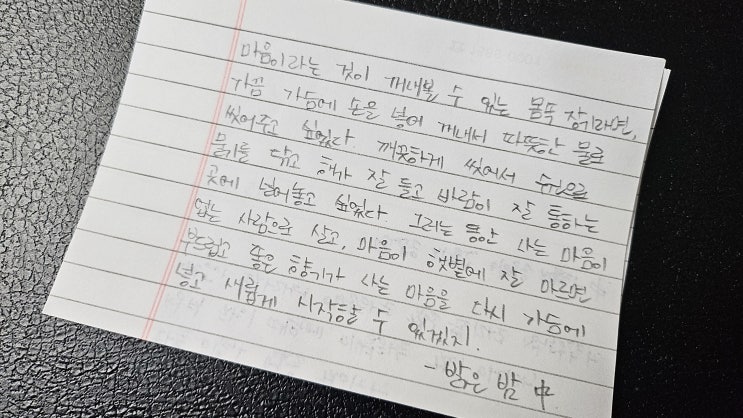 마음이라는 것이 꺼내볼 수 있는 몸속 장기라면,
가끔 가슴에 손을 넣어 꺼내서 따뜻한 물로
씻어주고 싶었다. 깨끗하게 씻어서 수건으로
물기를 닦고 해가 잘 들고 바람이 잘 통하는
곳에 널어놓고 싶었다. 그러는 동안 나는 마음이
없는 사람으로 살고, 마음이 햇볕에 잘 마르면
부드럽고 좋은 향기가 나는 마음을 다시 가슴에
넣고 새롭게 시작할 수 있겠지.
- 밝은 밤 中